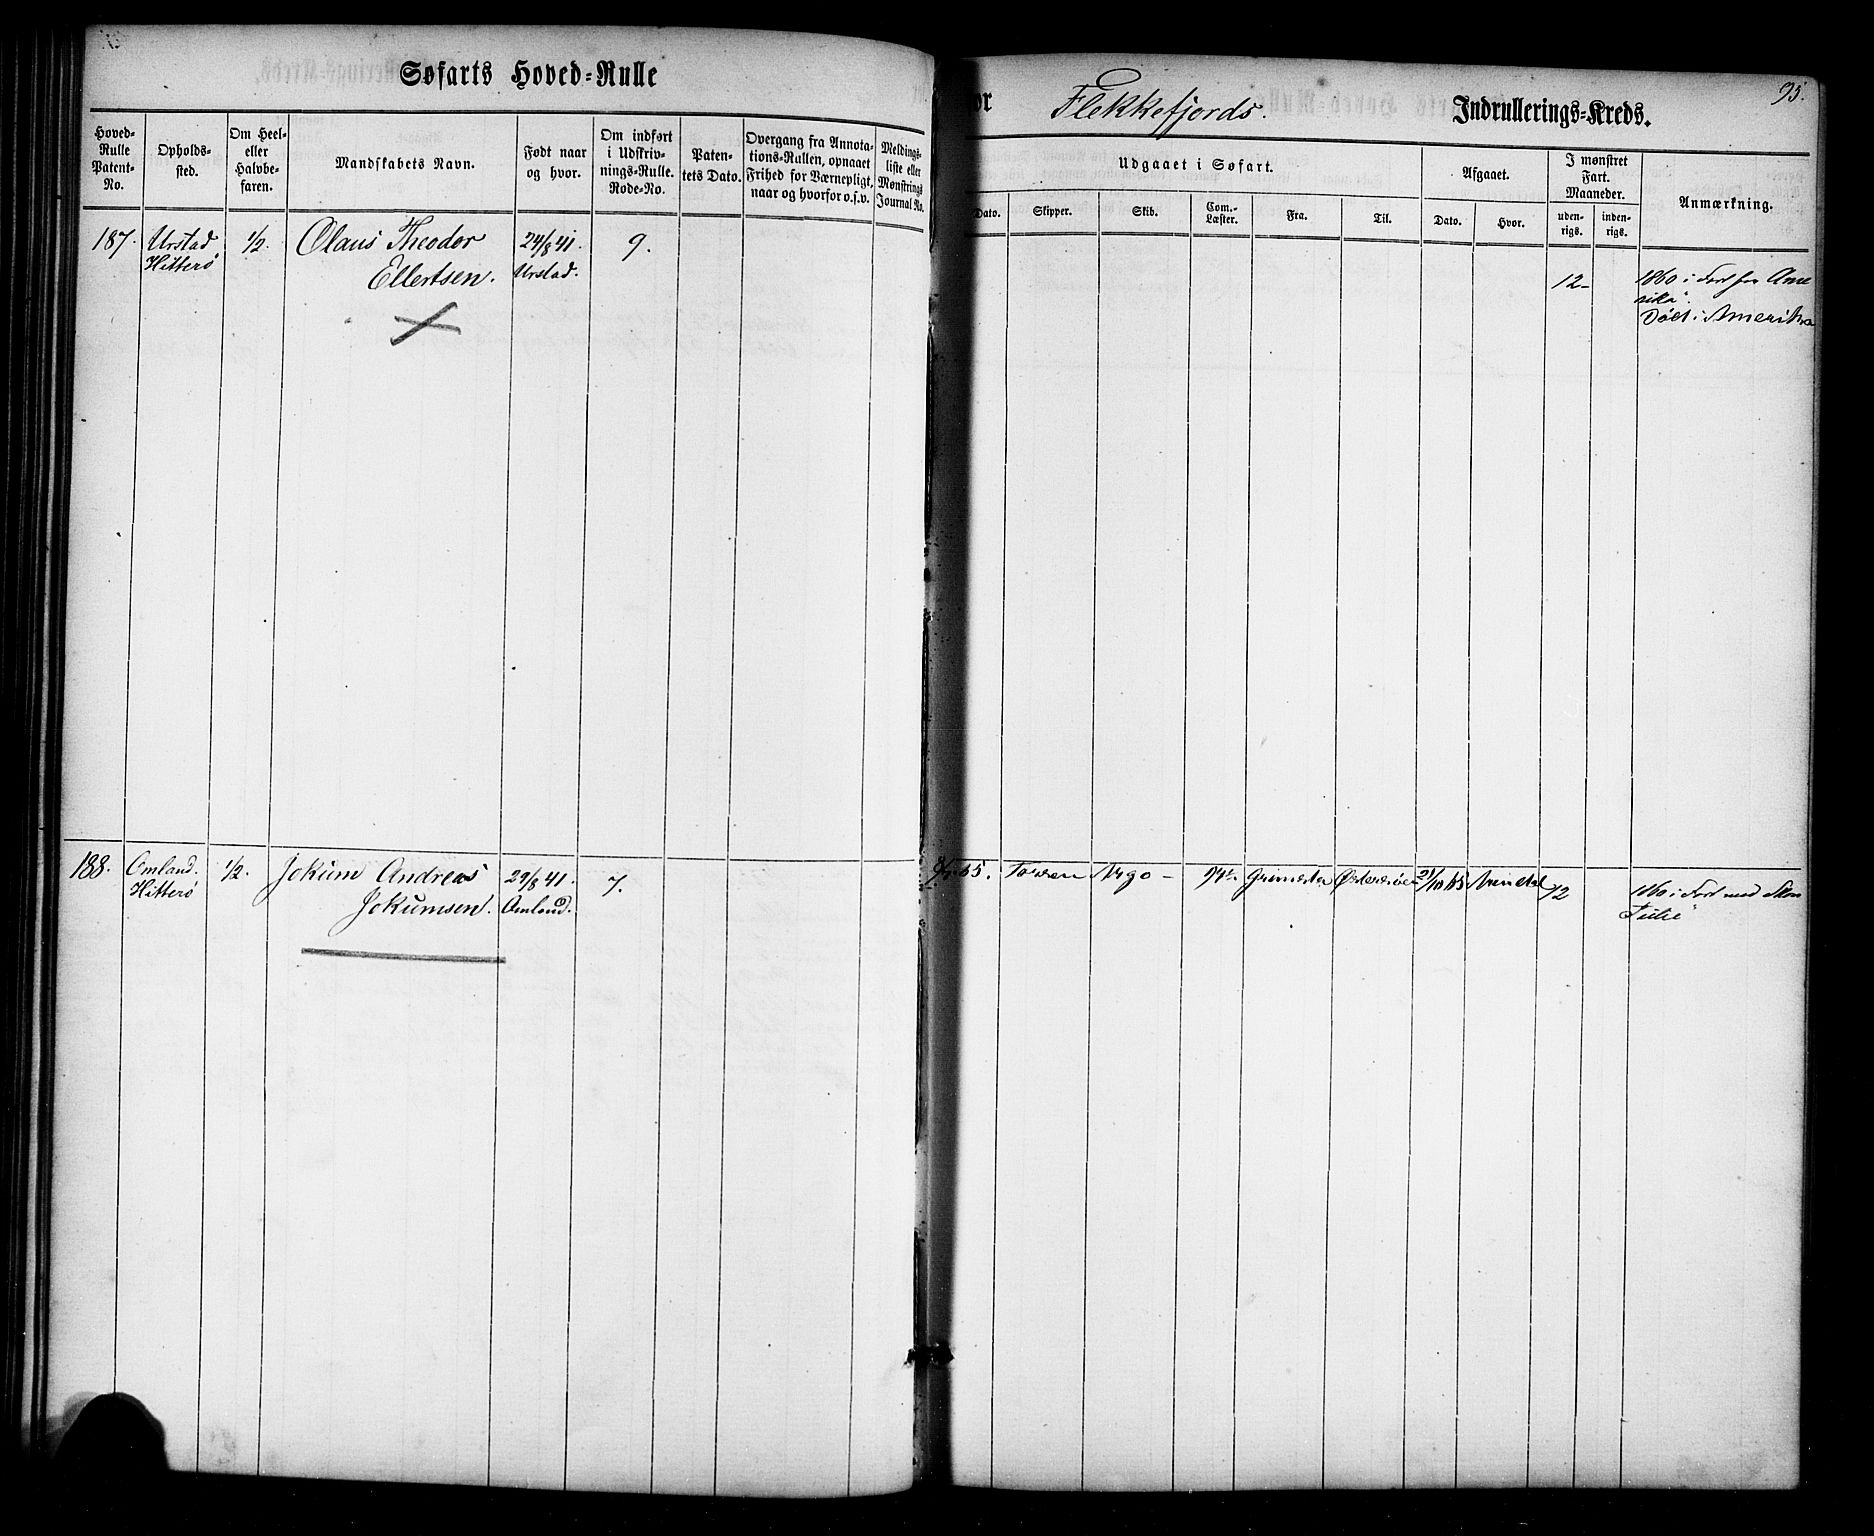 Søfarts Hoved-Rulle
Flekkefjords.
Indrullerings-Kreds.
95.
Hoved-Rulle Patent-No.
Opholds-sted.
Om Heel- eller Halvbe-faren.
Mandskabets Navn.
Født naar og hvor.
Om indført i Udskriv-nings-Rulle. Rode-No.
Paten-tets Dato.
Overgang fra Annota-tions-Rullen, opnaaet Frihed for Værnepligt, naar og hvorfor o.s.v.
Meldings-liste eller Mønstrings Journal No.
Udgaaet i Søfart.
Dato.
Skipper.
Skib.
Com.-Læster.
Fra.
Til.
Afgaaet.
Dato.
Hvor.
I mønstret Fart. Maaneder.
uden-rigs.
inden-rigs.
Anmærkning.
187. Urstad 1/2. Olaus Theodor 24/8 41. 9.
Hitterø Ellertsen. Urstad.
12- 1860 i Fart fra Ame
rika".
Død i Amerika
188. Omland. 1/2. Jokum Andreas 29/8 41. 7.
Hitterø Jokumsen. Omland.
65. Argo - Grimstad 21/10 65 Arendal 12 1860 i Fart med